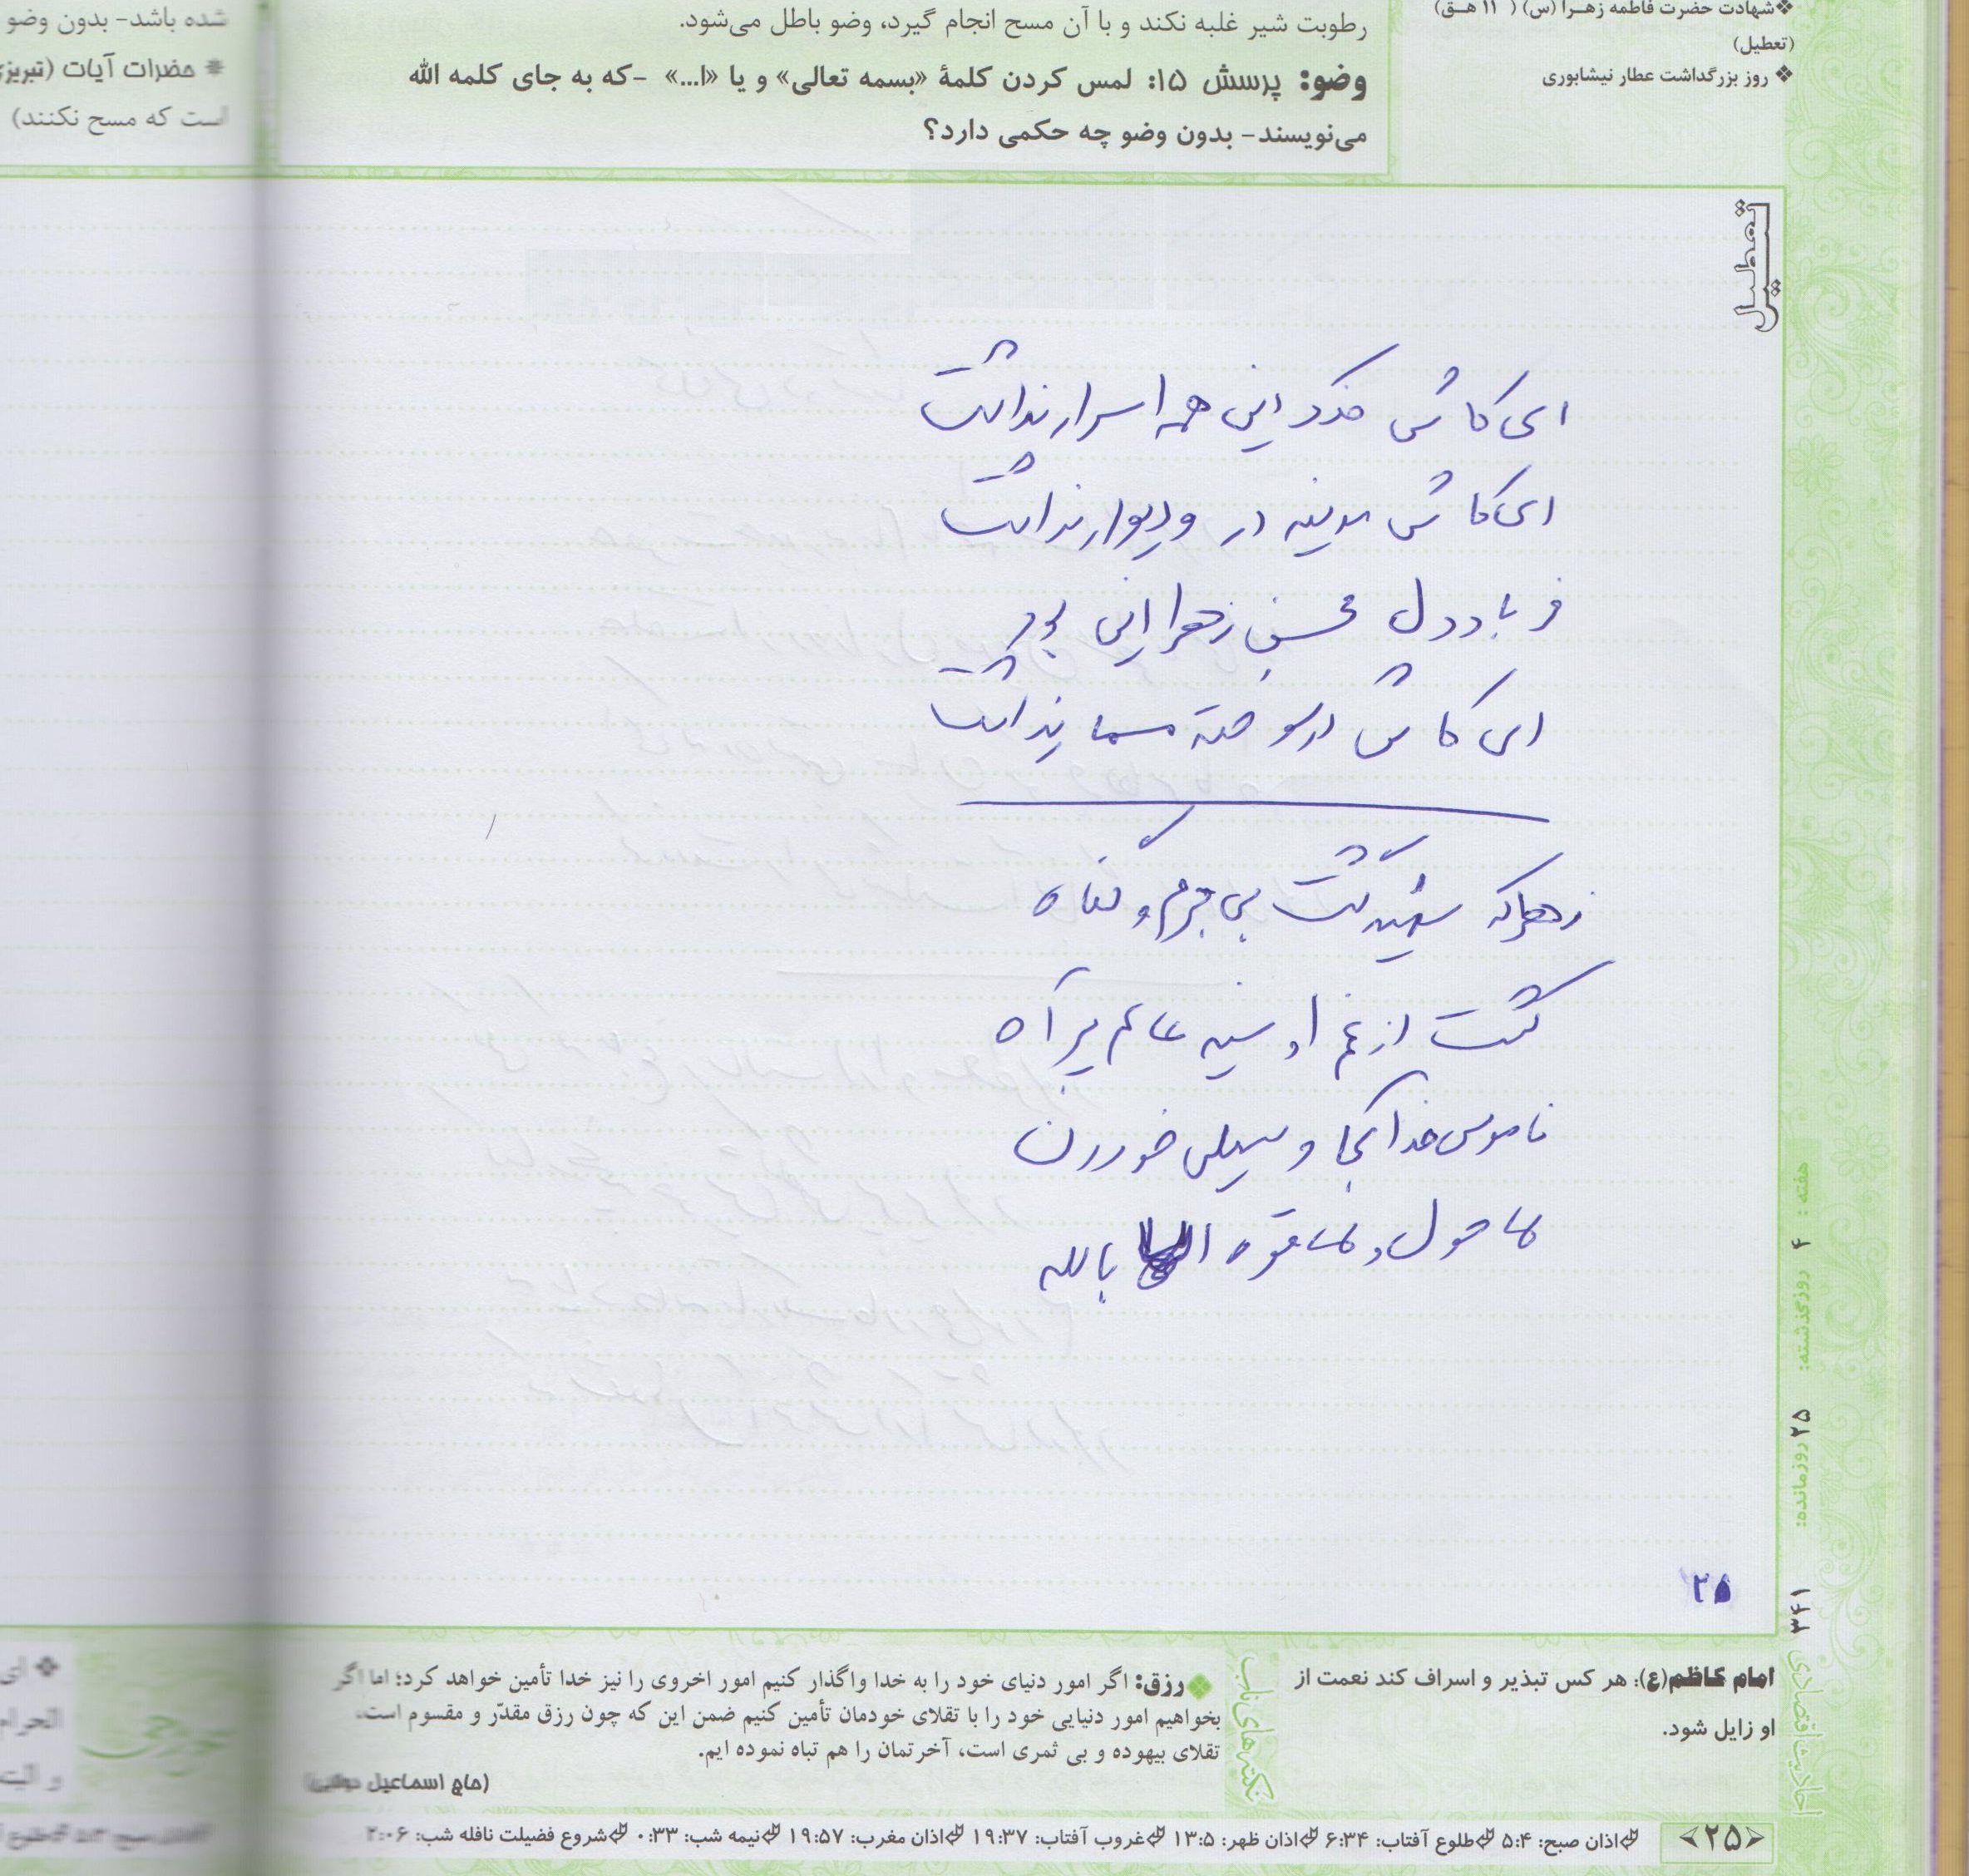 ❖شهادت حضرت فاطمه زهـرا (س) ( ۱۱ هـق)
(تعطیل)
❖ روز بزرگداشت عطار نیشابوری
رطوبت شیر غلبه نکند و با آن مسح انجام گیرد، وضو باطل می‌شود.
وضو: پرسش ۱۵: لمس کردن کلمۀ «بسمه تعالی» و یا «ا...» -که به جای کلمه الله
می‌نویسند- بدون وضو چه حکمی دارد؟
شده باشد- بدون وضو
* حضرات آیات (تبریزی
است که مسح نکنند)
تعطیل
ای کاش فدک این همه اسرار نداشت
ای کاش مدینه در و دیوار نداشت
فریاد دل محسن زهرا این بود
ای کاش در سوخته مسمار نداشت
زهرا که شهید گشت بی جرم و گناه
گشت از غم او سینه عالم پر آه
ناموس خدا کجا و سیلی خوردن
لا حول و لا قوه الا بالله
۲۵
هفته: ۴ روزگذشته: ۲۵ روزمانده: ۳۴۱
احادیث اقتصادی
امام کاظم(ع): هر کس تبذیر و اسراف کند نعمت از
او زایل شود.
نکته‌های ناب
رزق: اگر امور دنیای خود را به خدا واگذار کنیم امور اخروی را نیز خدا تأمین خواهد کرد؛ اما اگر
بخواهیم امور دنیایی خود را با تقلای خودمان تأمین کنیم ضمن این که چون رزق مقدّر و مقسوم است،
تقلای بیهوده و بی ثمری است، آخرتمان را هم تباه نموده ایم.
(حاج اسماعیل دولابی)
❖ ای
الحرام
و الیت
<۲۵> اذان صبح: ۵:۴ طلوع آفتاب: ۶:۳۴ اذان ظهر: ۱۳:۵ غروب آفتاب: ۱۹:۳۷ اذان مغرب: ۱۹:۵۷ نیمه شب: ۰:۳۳ شروع فضیلت نافله شب: ۲:۰۶